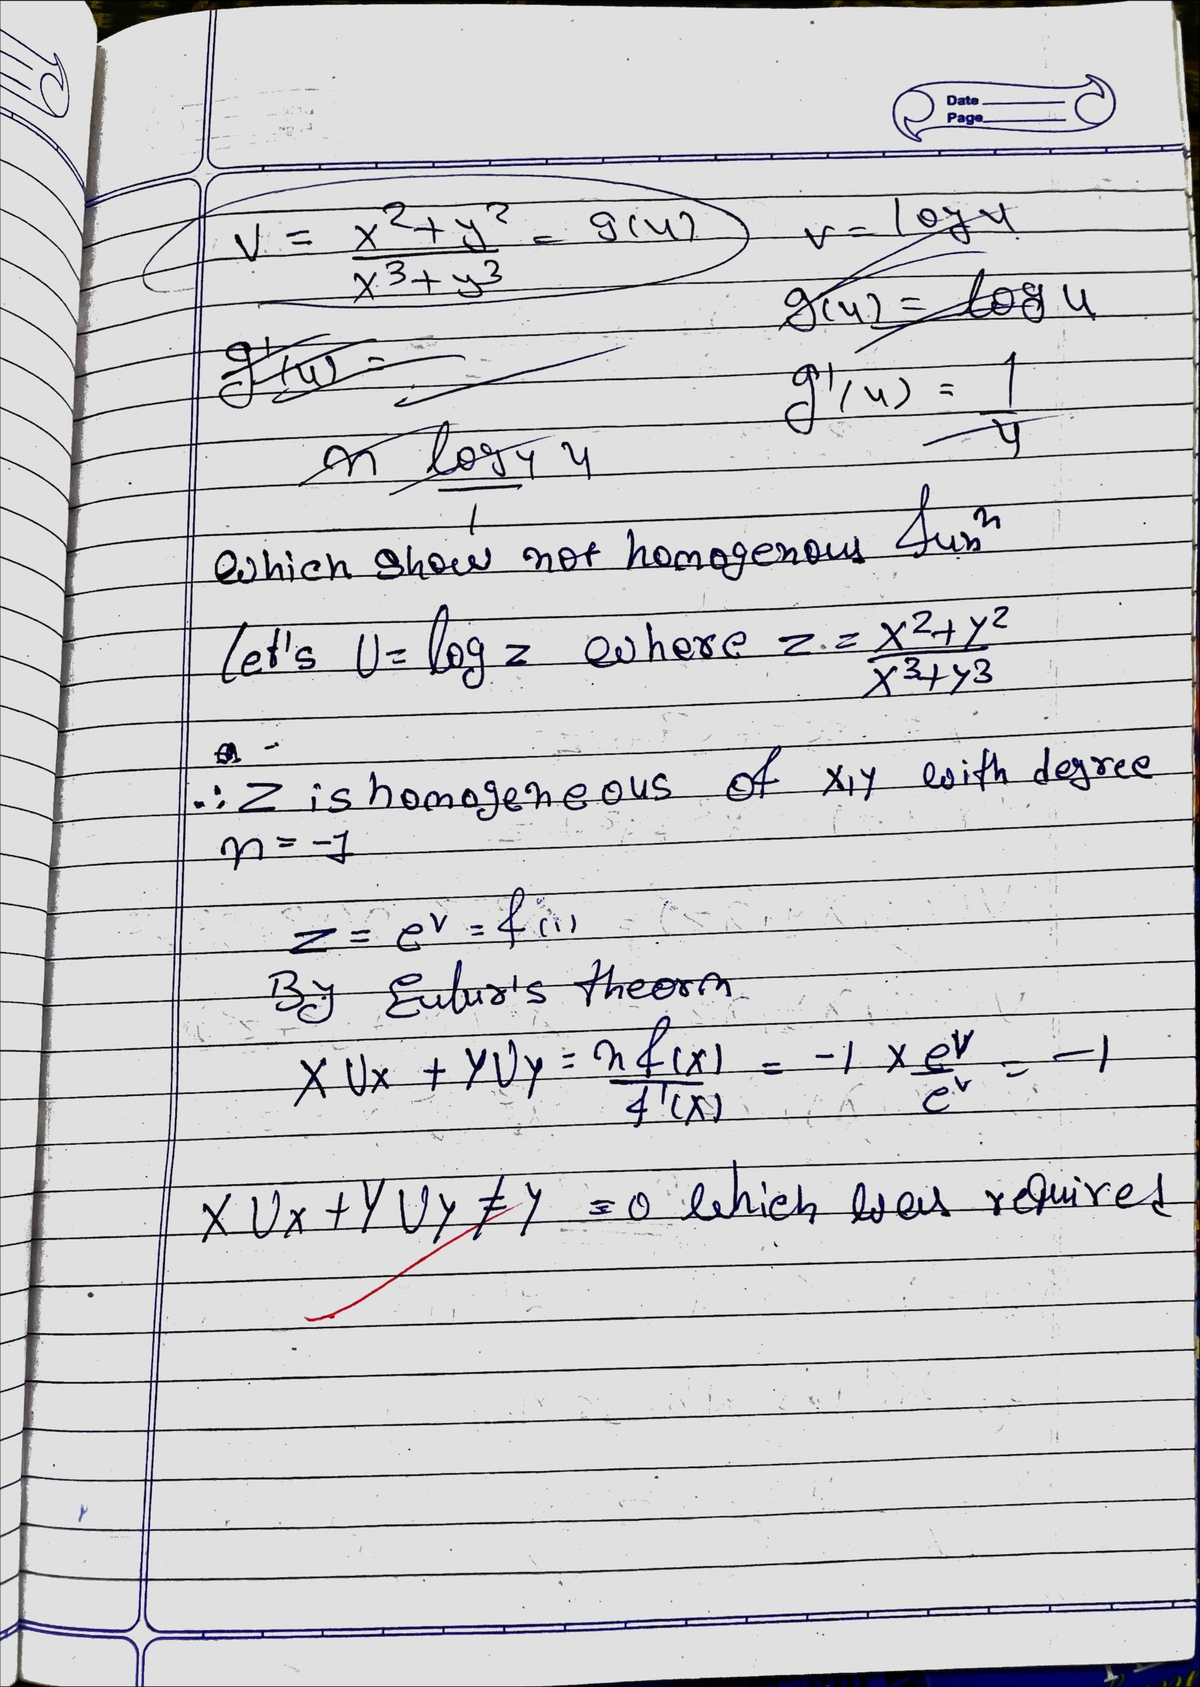 Date
Page
V = x²+y² / x³+y³ = g(u)
v = log u
g(u) = log u
g'(u) =
g'(u) = 1/y
n log y u / 1
which show not homogenous funⁿ
Let's U= log z where z = x²+y² / x³+y³
∴ Z is homogeneous of x,y with degree
n = -1
z = e^v = f(i)
By Eulur's theorm
X Ux + Y Uy = n f(x) / f'(x) = -1 × e^v / e^v = -1
X Ux + Y Uy + y = 0 which was required